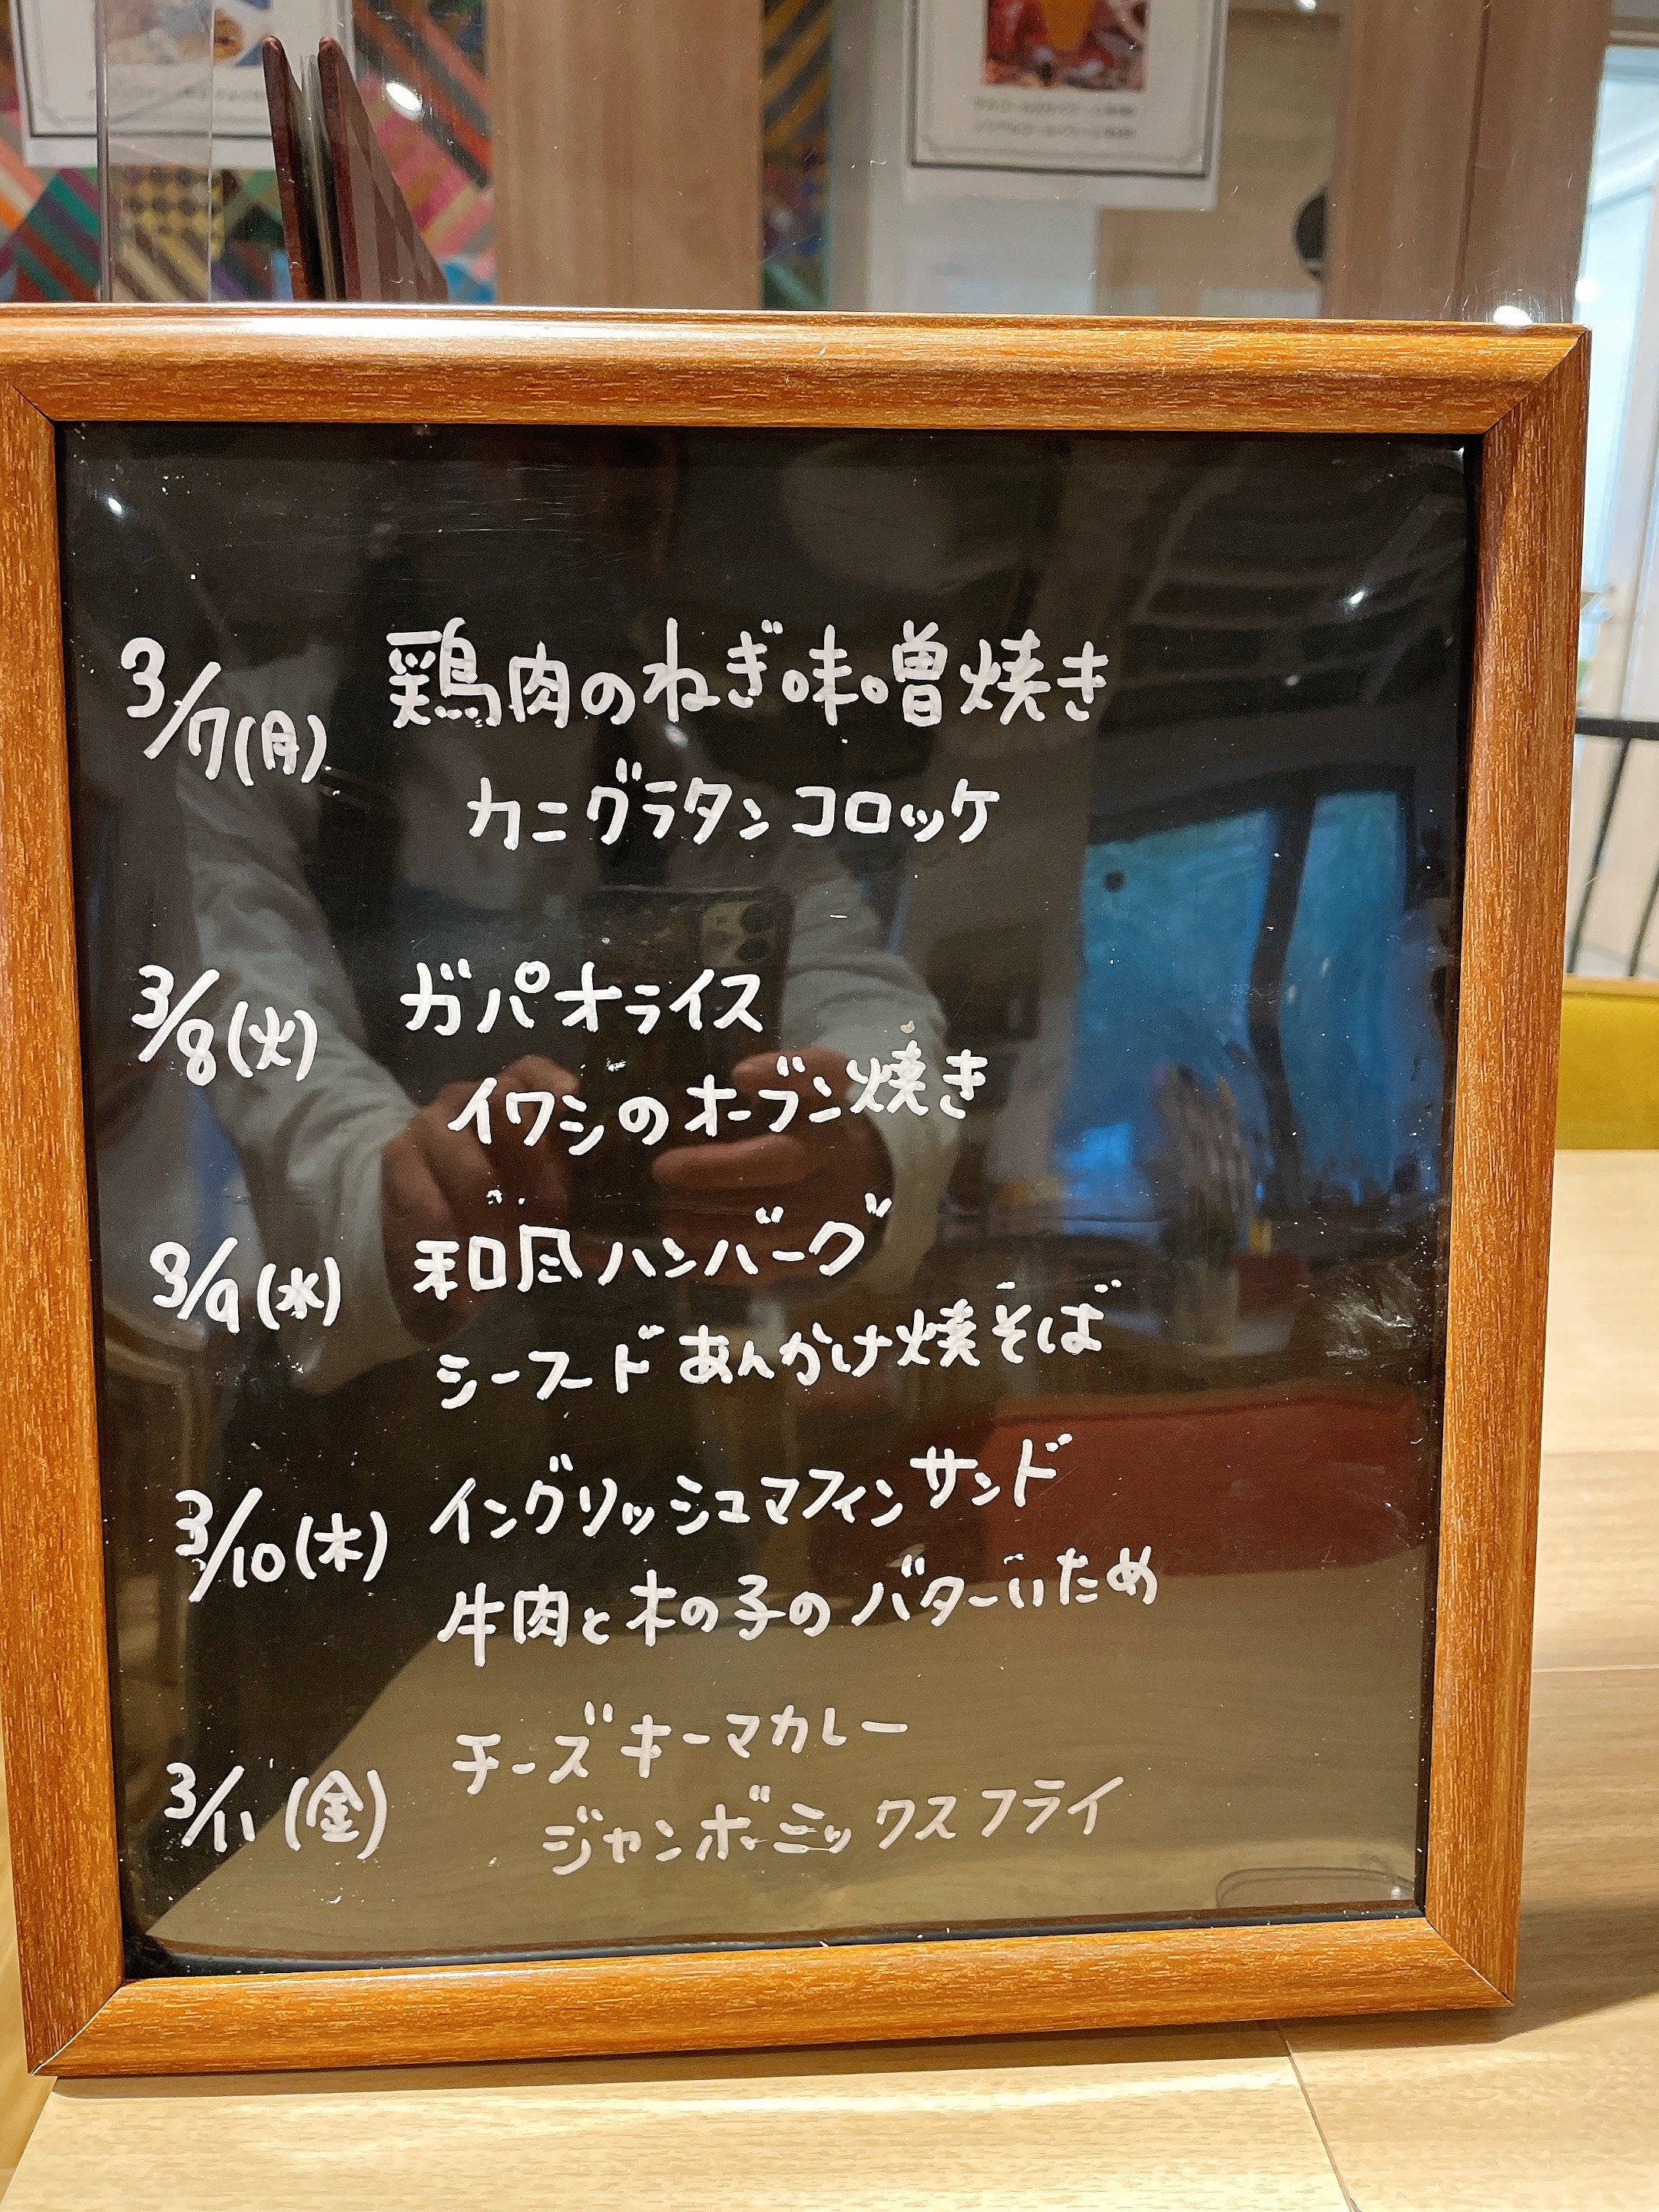 3/7(月) 鶏肉のねぎ味噌焼き
カニグラタンコロッケ
3/8(火) ガパオライス
イワシのオーブン焼き
3/9(水) 和風ハンバーグ
シーフードあんかけ焼そば
3/10(木) イングリッシュマフィンサンド
牛肉と木の子のバターいため
3/11(金) チーズキーマカレー
ジャンボミックスフライ